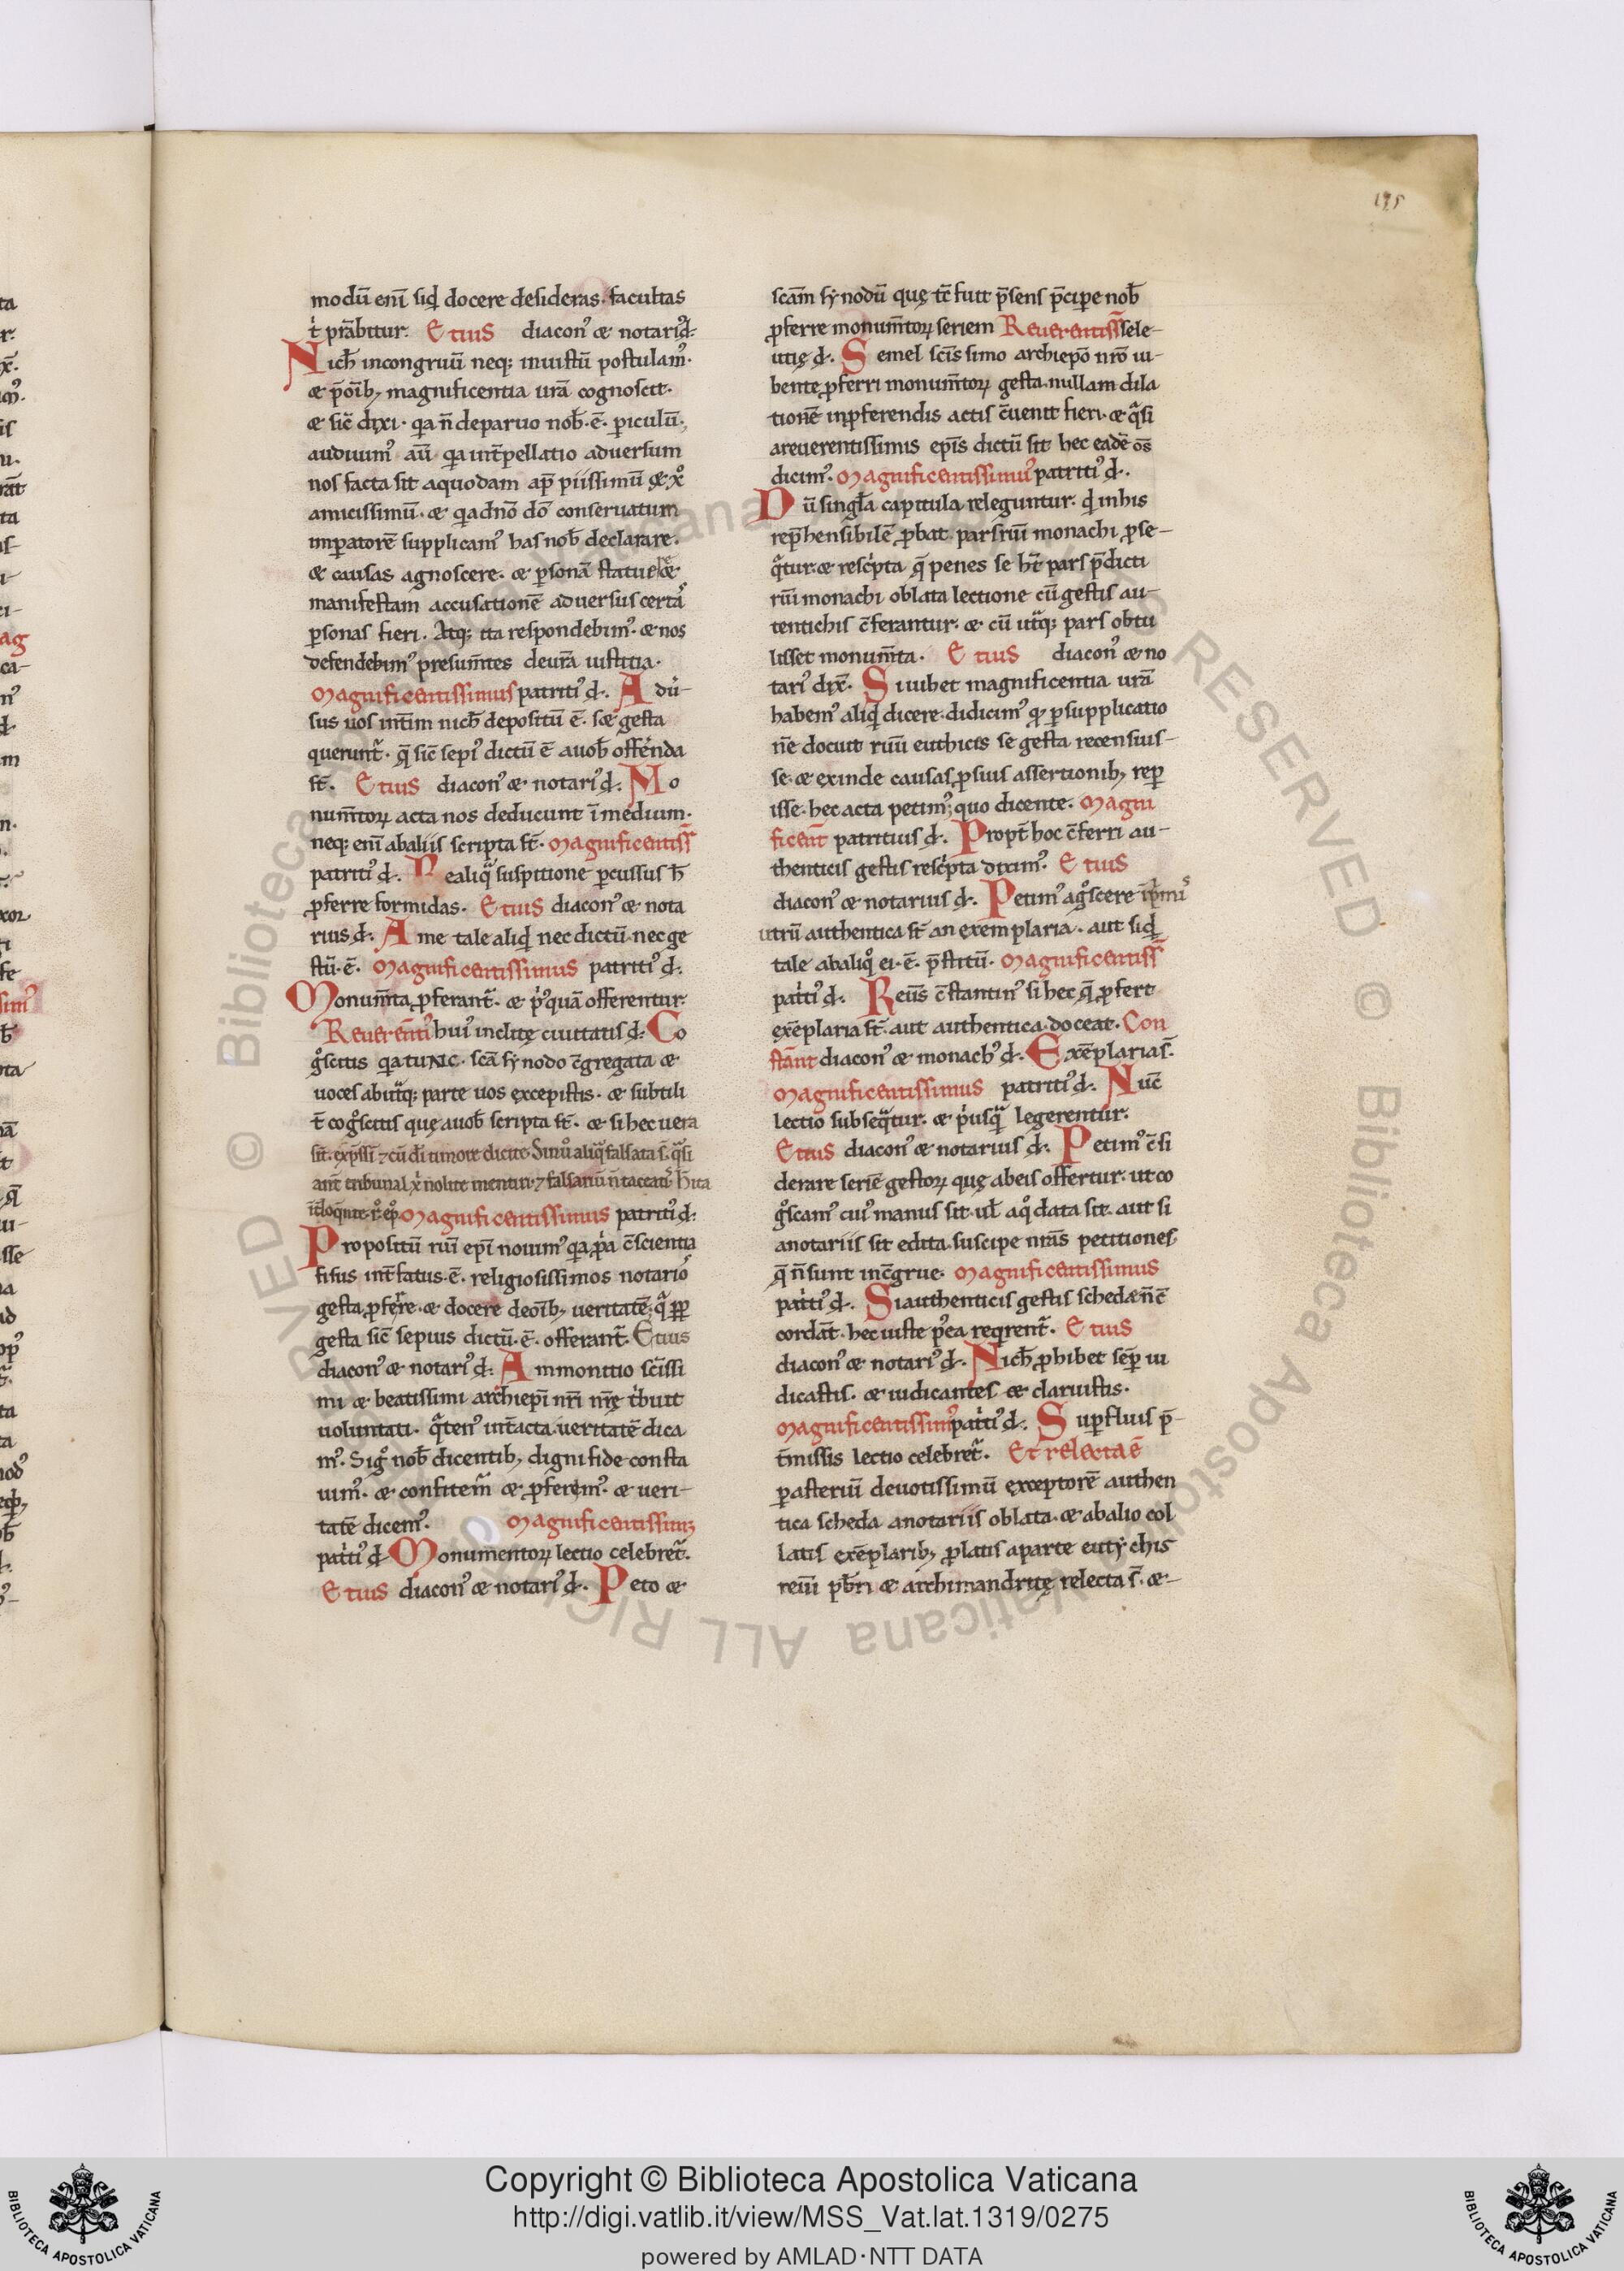 195
modū eni͞ siq̇d docere desideras. facultas
t̓ pr̄abitur. Etius diacon᷒ & notari᷒ d̵.
Nich̄ incongruū neq; iniustū postulam᷒.
& p̄ oi͞b; magnificentia ur̄a cognoscit.
& sic̄ dixi. qa n̄ de paruo nob̄. ē. periculū.
audiuim᷒ au͞t qa int̄pellatio aduersum
nos facta sit a quodam ap̄ piissimū & x͞p̊
amicissimū. & qa d̄no d̄o conseruatum
imperatorē supplicam᷒ has nob̄ declarare.
& causas agnoscere. & personā statuere &
manifestam accusationē aduersus certas
personas fieri. Atq; ita respondebim᷒. & nos
defendebim᷒ presum̄tes de ur̄a iustitia.
Magnificentissimus patriti᷒ d̵. Aduer-
sus uos int̄im nich̄ depositū ē. s; & gesta
querunt̄. q̄ sic̄ sepi᷒ dictū ē a uob̄ offerenda
st̄. Etius diacon᷒ & notari᷒ d̵. Mo
num̄torꝝ acta nos deducunt i͞ medium.
neq; eni͞ ab aliis scripta st̄. Magnificentiss̄
patriti᷒ d̵. Ne aliqua suspitione percussus h̄
ꝓferre formidas. Etius diacon᷒ & nota
rius d̵. A me tale aliqd nec dictū nec ge
stū. ē. Magnificentissimus patriti᷒ d̵.
Monum̄ta ꝓferant̄. & p̓᷒quā offerentur.
Reuerenti᷒ hui᷒ inclitę ciuitatis d̵. Co
gͦscitis qa tunc. sc̄a synodo c̄gregata &
uoces ab utraq; parte uos excepistis. & subtili
t̄ cogͦscitis que a uob̄ scripta st̄. & si hec uera
sīt. exp̄ssi͞ ⁊ cū di͞ timore dicite. Sin uͦ aliqua falsata s̄. quasi
an̄ tribunal x̓ nolite mentiri. ⁊ falsariū n̄ taceatis. h̄ ita
Magnificentissimus patriti᷒ d̵.
Propositū rui͞ ep̄i nouim᷒ qa ꝓpa c̄scientia
fisus int̄fatus. ē. religiosissimos notarios
gesta ꝓferre. & docere de oi͞b; ueritatē. qua ꝓp̄
gesta sic̄ sepius dictū. ē. offerant̄. Etius
diacon᷒ & notari᷒ d̵. Ammonitio sc̄issi
mi & beatissimi archiep̄i nr̄i m̄ę t̓buit
uoluntati. quaten᷒ int̄acta ueritatē dica
m᷒. Sigͦ nob̄ dicentib; digni fide consta
uim᷒. & confitem̄ & ꝓferem᷒. & ueri-
tatē dicem᷒. Magnificentissim᷒
pat̓ti᷒ d̵. Monumentorꝝ lectio celebret̄.
Etius diacon᷒ & notari᷒ d̵. Peto &
sc̄am synodū quę tc̄ fuit p̄sens p̄cipe nob̄
ꝓferre monum̄torꝝ seriem Reuerentiss̄ sele-
utię d̵. Semel sc̄issimo archiep̄o nr̄o iu-
bente ꝓferri monum̄torꝝ gesta. nullam dila
tionē in ꝓferendis actis c̄uenit fieri. & quasi
a reuerentissimis ep̄is dictū sit hec eadē os̄
dicim᷒. Magnificentissimus patriti᷒ d̵.
Dū singl̄a capitula releguntur. q̇d in his
rep̄hensibilē ꝓbat pars rui͞ monachi ꝓse-
quat̄ur. & resc̓pta q̄ penes se h̄t pars p̄dicti
rui͞ monachi oblata lectione cū gestis au-
tentichis c̄ferantur. & cū utraq; pars obtu
lisset monum̄ta. Etius diacon᷒ & no
tari᷒ dix̄. Si iubet magnificentia ur̄a
habem᷒ aliq̇d dicere. didicim᷒ qꝫ per supplicatio
nē docuit rui͞ euthicis se gesta recensius-
se. & exinde causas ꝓ suis assertionib; rep̄
isse. hec acta petim᷒; quo dicente. Magni
ficent̄ patritius d̵. Propt̄ hoc c̄ferri au-
thenticis gestis resc̓pta diximus. Etius
diacon᷒ & notarius d̵. Petim᷒ agͦscere i͞primis
utrū authentica st̄ an exemplaria. aut siq̇d
tale ab aliqͦ ei. ē. p̄stitū. Magnificentiss̄
pat̓ti᷒ d̵. Reūs c̄stantin᷒ si hec q̄ ꝓfert
exēplaria st̄. aut authentica. doceat. Con
stānt diacon᷒ & monach᷒ d̵. Exēplaria s̄.
Magnificentissimus patriti᷒ d̵. Nūc
lectio subsequatur. & p̓usquā legerentur.
Etius diacon᷒ & notarius d̵. Petim᷒ c̄si
derare seriē gestorꝝ quę ab eis offertur. ut co
gͦscam᷒ cui᷒ manus sit. ul̄ a qͦ data sit. aut si
a notariis sit edita. suscipe nr̄as petitiones
q̄ n̄ sunt inc̄grue. Magnificentissimus
pat̓ti᷒ d̵. Si authenticis gestis schedæ n̄ c̄
cordāt. hec iuste postea reqrent̄. Etius
diacon᷒ & notari᷒ d̵. Nich̄ ꝓhibet sep̄ iu
dicastis. & iudicantes & claruistis.
Magnificentissim᷒ pat̓ti᷒ d̵. Superfluis p̄-
t̄missis lectio celebret̄. Et relecta ē
per asteriū deuotissimū exceptorē authen
tica scheda a notariis oblata. & ab alio col
latis exēplarib; ꝓlatis a parte eutychis
reui͞ pb̄ri & archimandritę relecta s̄. &-
ta
r.
x̄.
m᷒.
Copyright © Biblioteca Apostolica Vaticana
http://digi.vatlib.it/view/MSS_Vat.lat.1319/0275
powered by AMLAD·NTT DATA
BIBLIOTECA APOSTOLICA VATICANA
BIBLIOTECA APOSTOLICA VATICANA
© Biblioteca Apostolica Vaticana ALL RIGHTS RESERVED